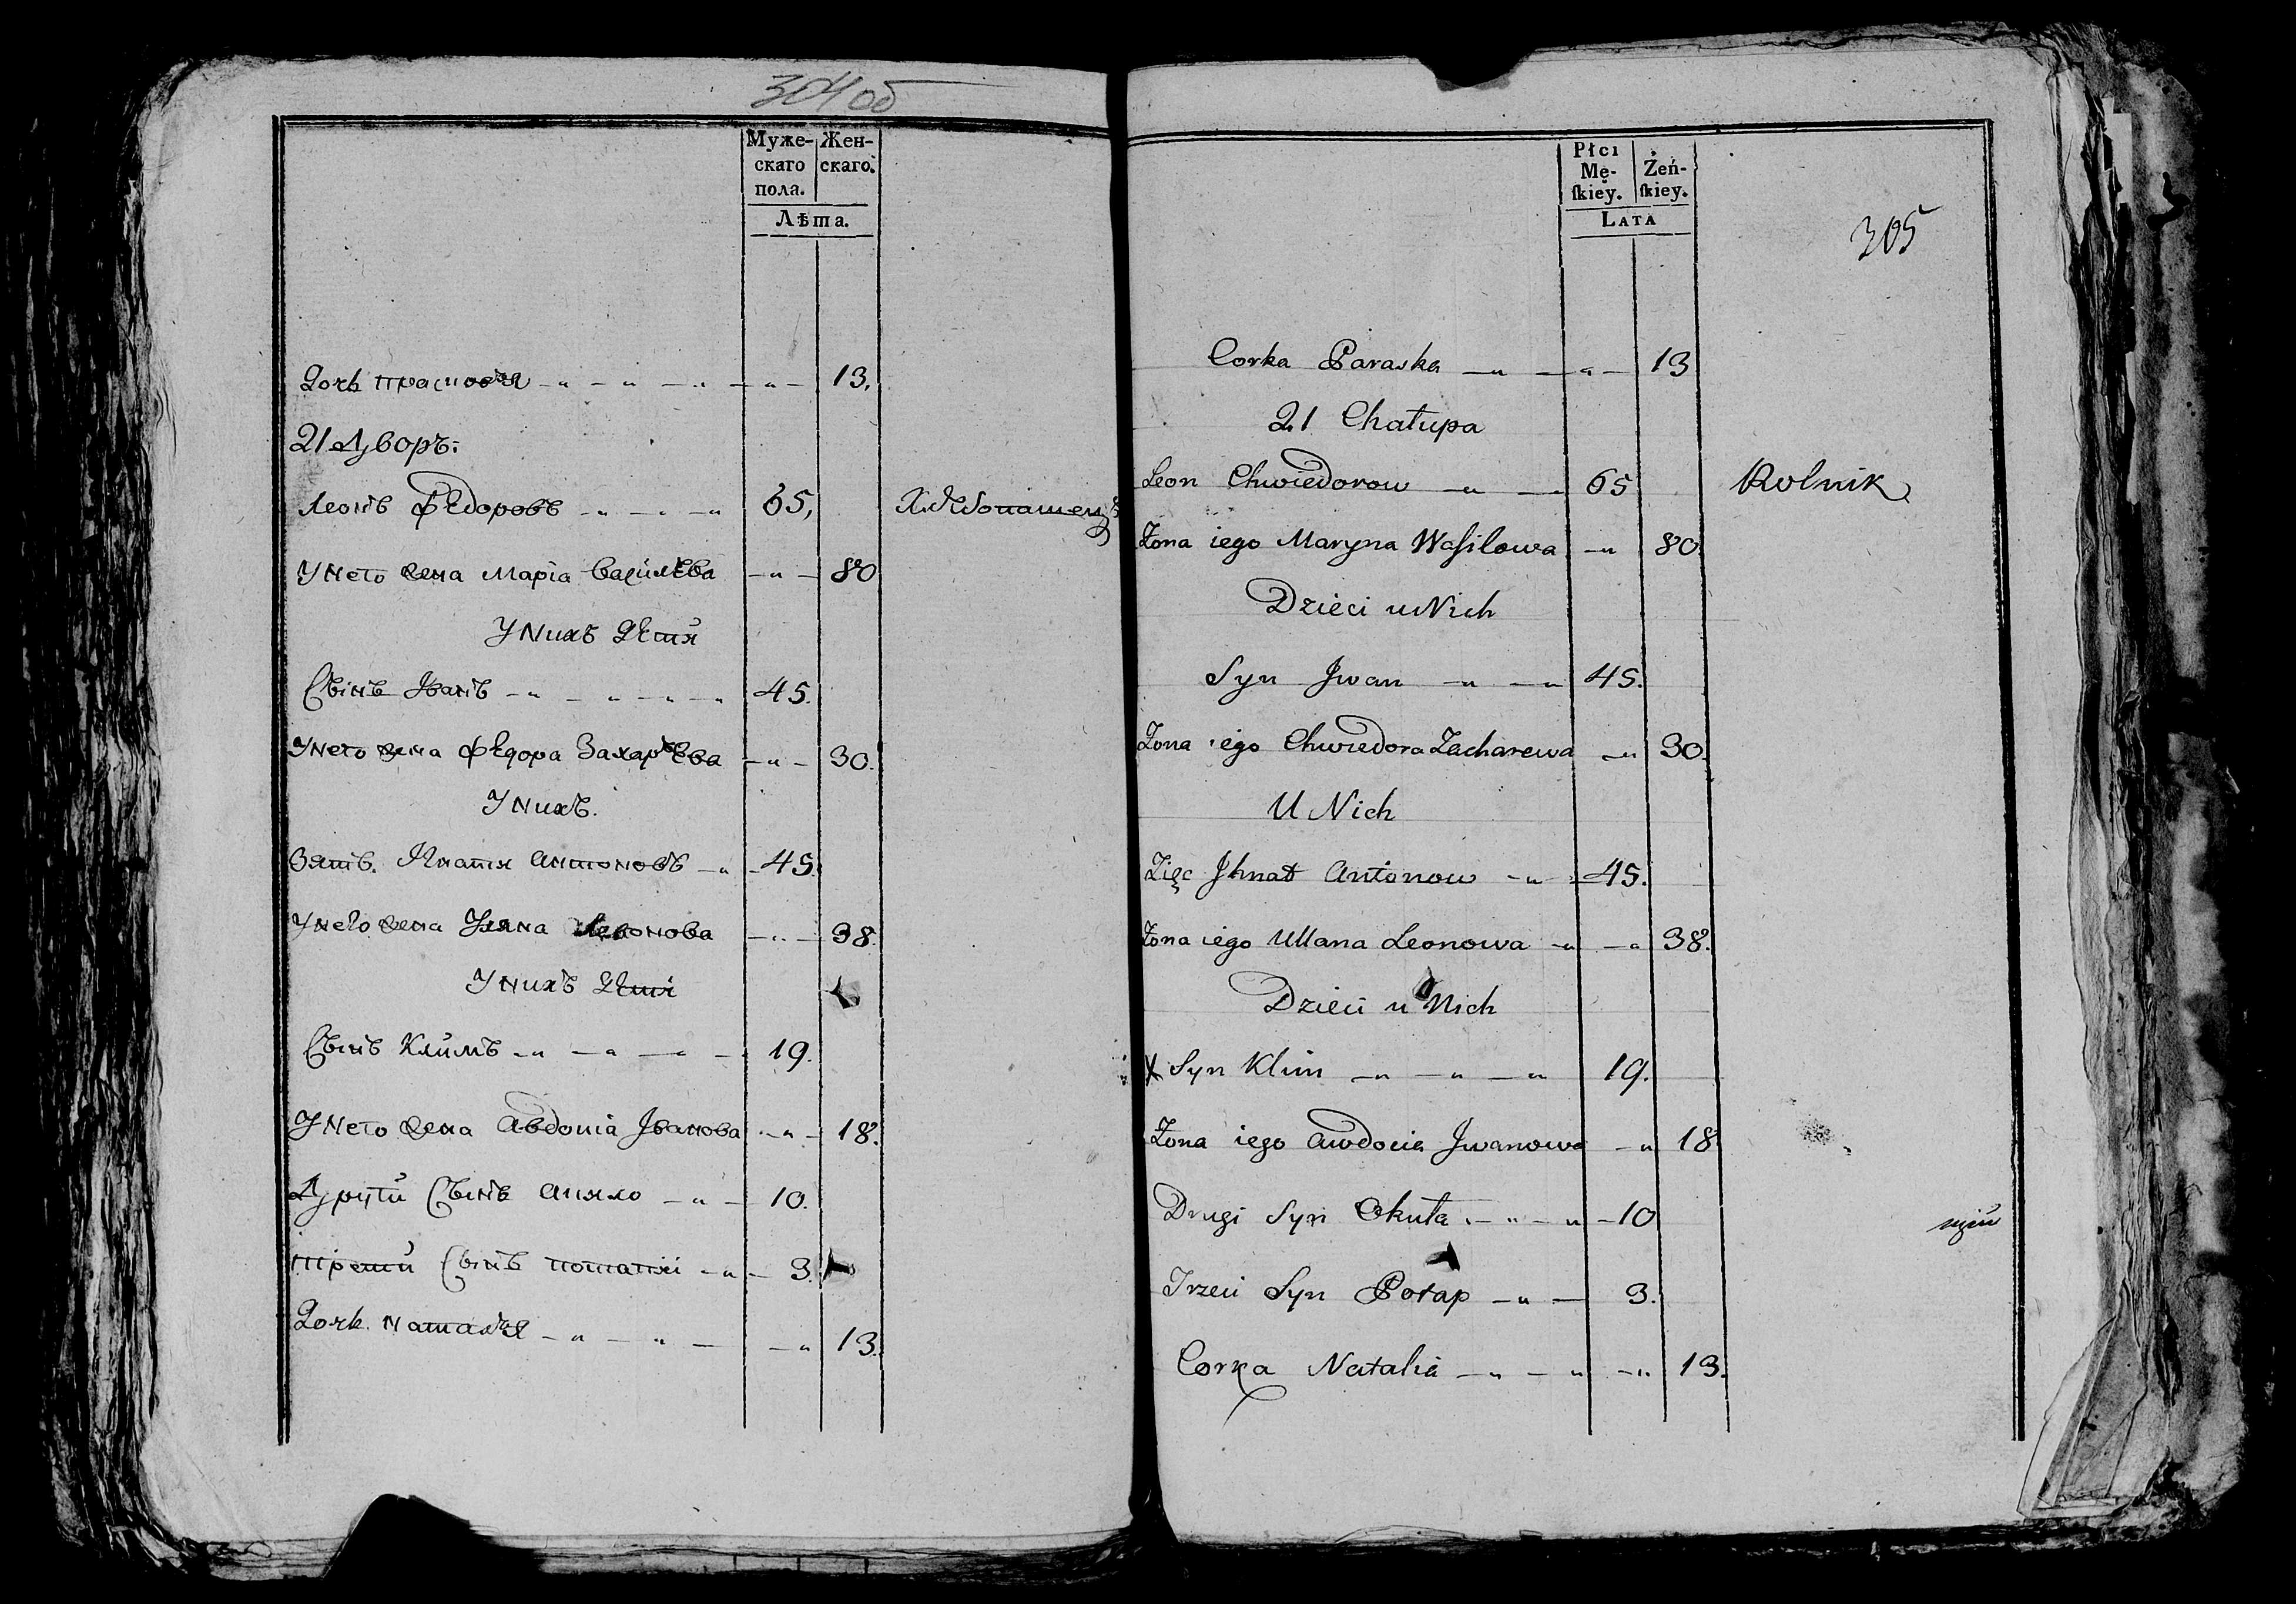 304 об
Муже-
скаго
пола.
Жен-
скаго.
Лѣта.
Дочь Прасковѧ 13.
21 Дворъ:
Леонъ Федоровъ 65, Хлебопашецъ
У него жена Маріа Василѣва 80
У нихъ Дети
Сынъ Іванъ 45.
У него жена Федора Захарѣва 30.
У нихъ.
Зять. Антоновъ 45.
У него жена Уляна Леонова 38.
У нихъ Дети
Сынъ Климъ 19.
У него жена Авдотіа Іванова 18.
Другій Сынъ 10.
третій Сынъ 3.
Дочь Наталѧ 13.
Płci
Mę-
ſkiey.
Żeń-
ſkiey.
LATA
305
Corka Paraska 13
21 Chałupa
Leon Chwiedorow 65 Rolnik
Żona iego Maryna Waſilowa 80.
Dzieci u Nich
Syn Jwan 45.
Żona iego Chwiedora Zacharewa 30.
U Nich
Zięc Jhnat Antonow 45.
Żona iego Ullana Leonowa 38.
Dzieci u Nich
x Syn Klim 19.
Żona iego Awdocia Jwanowa 18
Drugi Syn Okuła 10
Trzeci Syn Potap 3.
Corka Natalia 13.